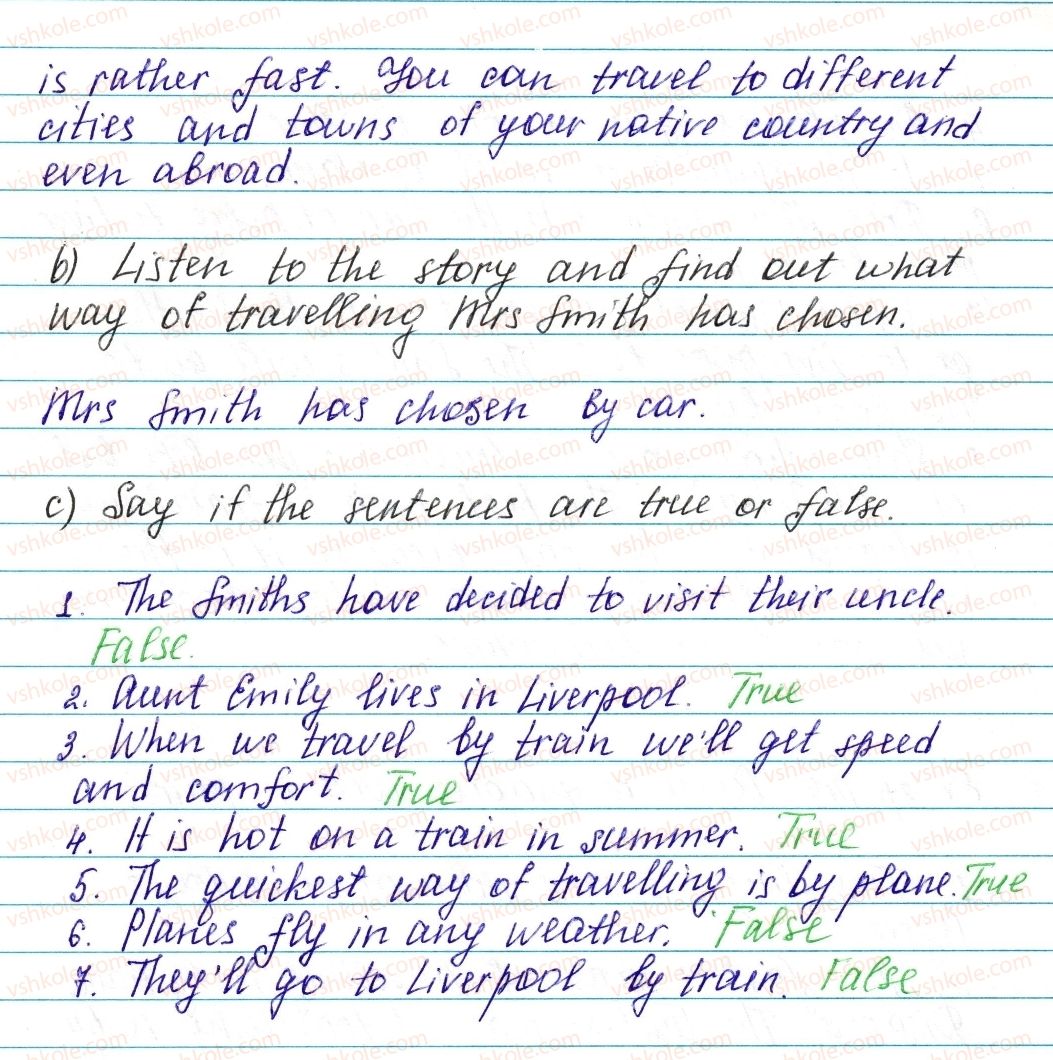 is rather fast. You can travel to different
cities and towns of your native country and
even abroad.
b) Listen to the story and find out what
way of travelling Mrs Smith has chosen.
Mrs Smith has chosen by car.
c) Say if the sentences are true or false.
1. The Smiths have decided to visit their uncle.
False.
2. Aunt Emily lives in Liverpool. True
3. When we travel by train we'll get speed
and comfort. True
4. It is hot on a train in summer. True
5. The quickest way of travelling is by plane. True
6. Planes fly in any weather. False
7. They'll go to Liverpool by train. False